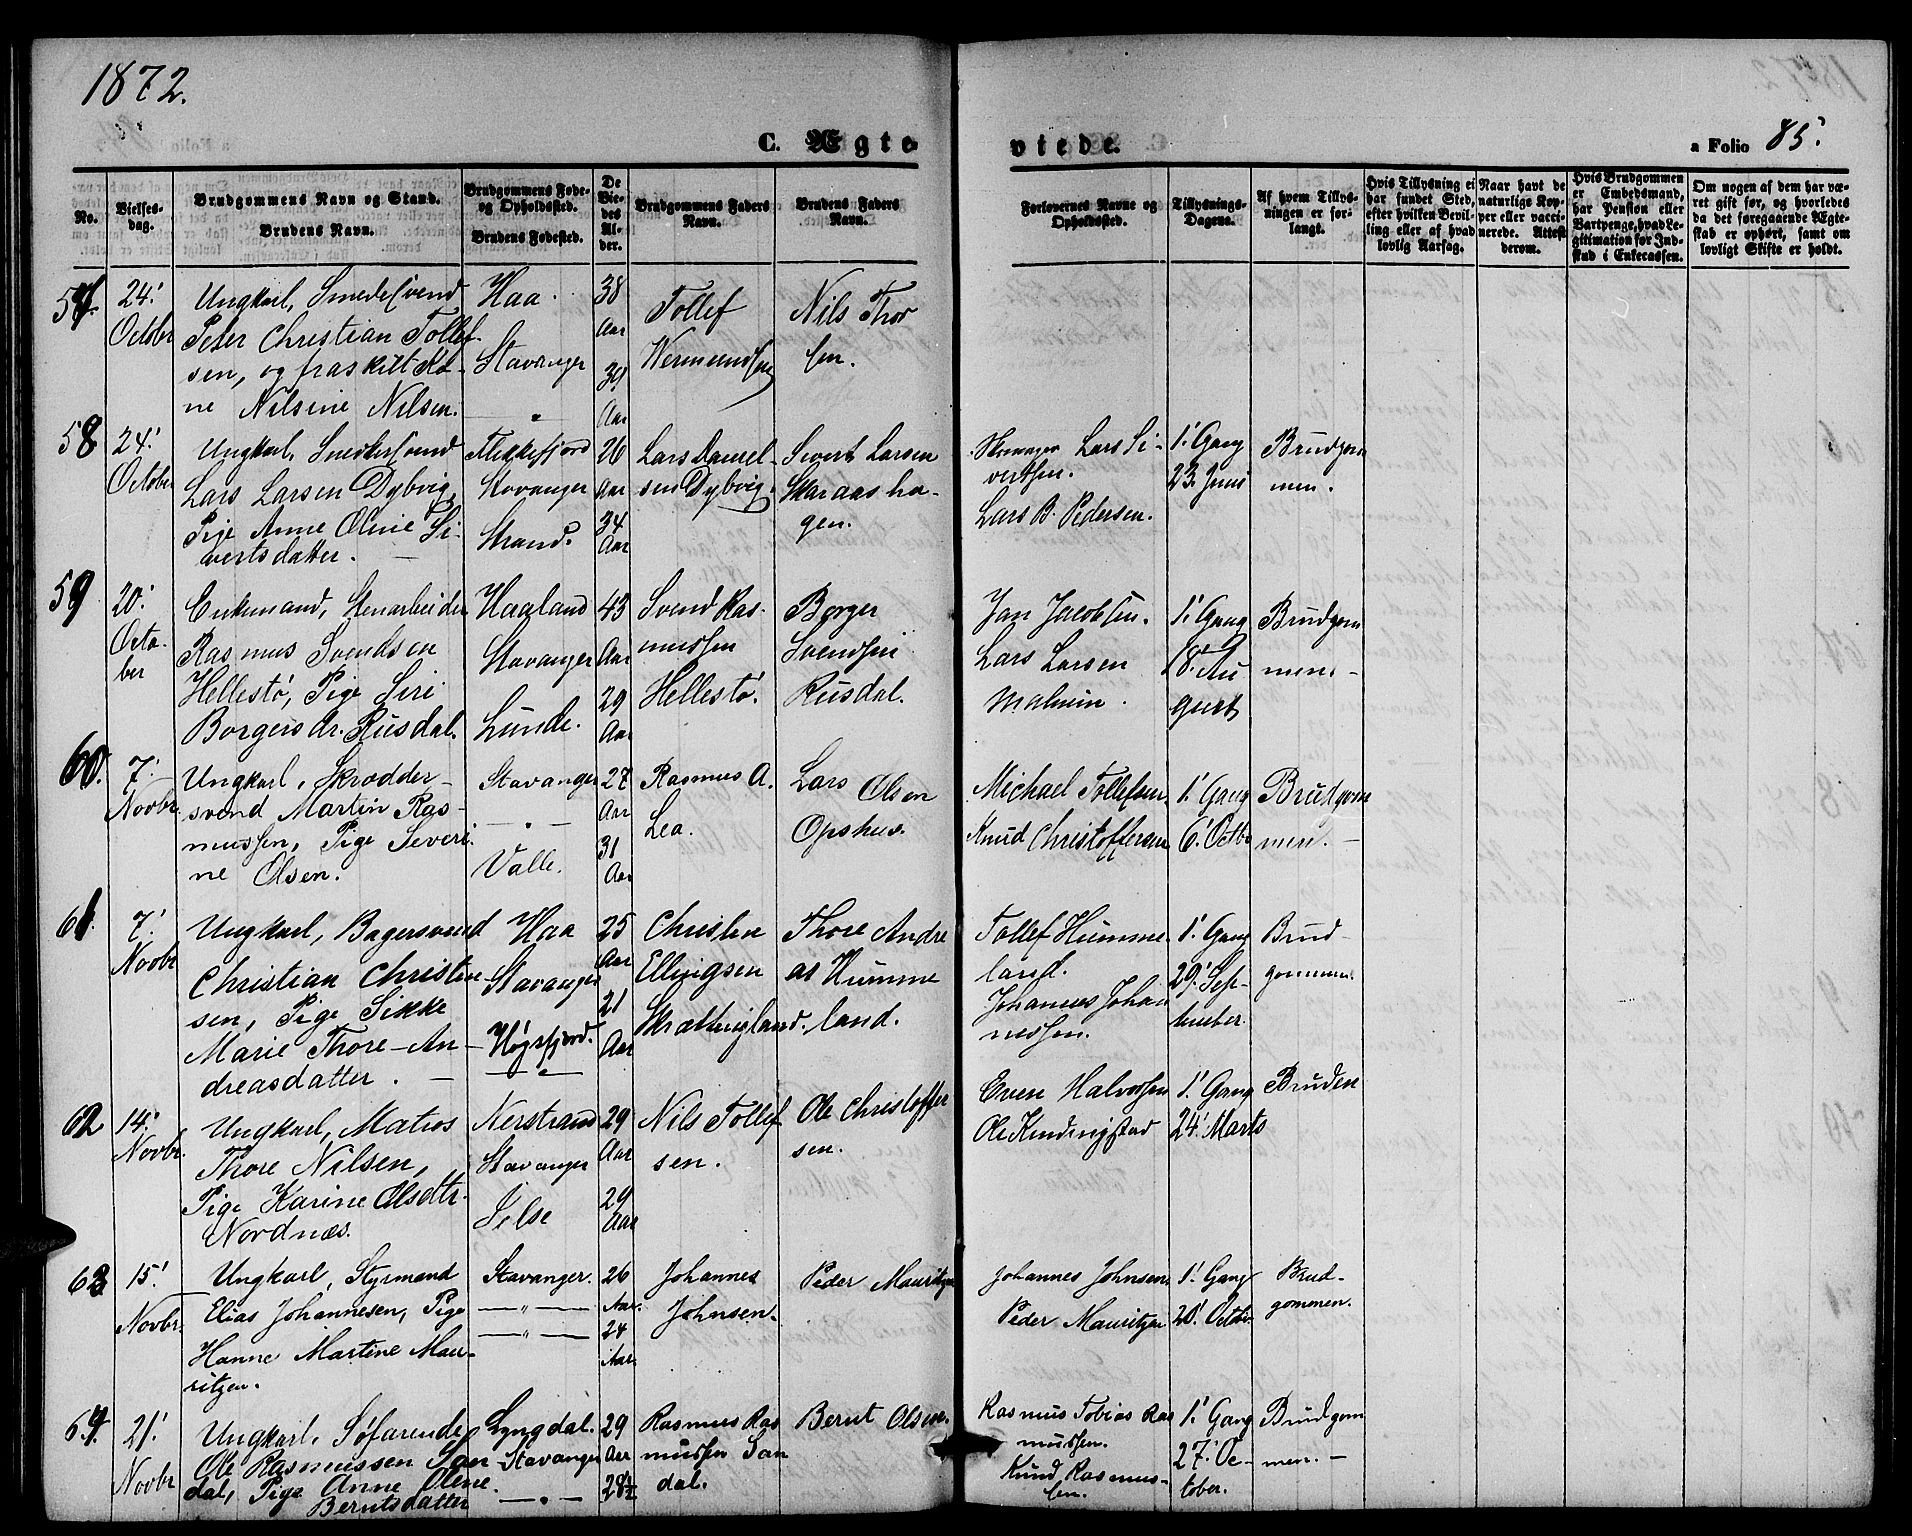 1872.
C. Ægte
viede.
a Folio 85.
No.
Vielses-
dag.
Brudgommens Navn og Stand.
Brudens Navn.
Brudgommens Føde-
og Opholdssted.
Brudens Fødested.
De
Vie-
des
Al-
der.
Brudgommens Faders
Navn.
Brudens Faders
Navn.
Forlovernes Navne og
Opholdssted.
Tillysnings-
Dagene.
Af hvem Tillys-
ningen er for-
langt.
Hvis Tillysning ei
har fundet Sted,
efter hvilken Bevil-
ling eller af hvad
lovlig Aarsag.
Naar havt de
naturlige Kop-
per eller vacci-
nerede. Attest
derom.
Hvis Brudgommen
er Embedsmand,
har Pension eller
Vartpenge, hvad Le-
gitimation for Ind-
skud i Enkecassen.
Om nogen af dem har væ-
ret gift før, og hvorledes
da det foregaaende Ægte-
skab er ophørt, samt om
lovligt Skifte er holdt.
57.
24.
Octobr
Ungkarl, Smedesvend
Peter Christian Tollef-
sen, og fraskilt Ko-
ne Nilsine Nilsen.
Haa.
Stavanger
— " —
38
Aar
39
Aar
Tollef
Wermundsen
Nils Thor
sen.
58
24.
October
Ungkarl, Snedkersvend
Lars Larsen Dybvig,
Pige Anne Oline Si-
vertsdatter. —
Flekkefjord
Stavanger
Strand.
26
Aar
34
Aar
Lars Daniel-
sen Dybvig.
Sivert Larsen
Skaraasha-
gen.
Lars Si-
vertsen.
Lars B. Pedersen.
1. Gang
23. Juni
Brudgom
men.
59
20.
Octo-
ber
Enkemand, Stenarbeider
Rasmus Svendsen
Hellestø, Pige Siri
Borgersdr. Rusdal.
Haaland
Stavanger
Lunde.
43
Aar
29
Aar
Svend Ras-
mussen
Hellestø.
Borger
Svendsen
Rusdal.
Jan Jacobsen.
Lars Larsen
Malmin.
1. Gang
18. Au
gust
Brudgom
men. -
60.
7.
Novbr.
Ungkarl, Skrædder-
svend Martin Ras-
mussen, Pige Severi-
ne Olsen.
Stavanger
— " —
Valle.
27
Aar
31
Aar
Rasmus A.
Lea.
Lars Olsen
Opshus.
Michael Tollefsen
Knud Christoffersen
1. Gang
6. Octbr
Brudgom
men. -
61.
7.
Novbr
Ungkarl, Bagersvend
Christian Christen-
sen, Pige Sikke
Marie Thore-An-
dreasdatter. —
Haa
Stavanger
Høgsfjord.
— " —
25
Aar
21
Aar
Christen
Ellingsen
Skrættingland.
Thore Andre
as Humme
land.
Tollef Humme-
land.
Johannes Johan
nessen.
1. Gang
29. Sep-
tember.
Brud-
gommen.
62
14.
Novbr.
Ungkarl, Matros
Thore Nilsen,
Pige Karine Olsdtr.
Nordnæs.
Nerstrand
Stavanger
Jelse
29
Aar
29
Aar
Nils Tollef
sen.
Ole Christoffer
sen.
Even Halvorsen
Ole Kindingstad
1. Gang
24. Marts
Bruden
63
15.
Novbr.
Ungkarl, Styrmand
Elias Johannesen, Pige
Hanne Martine Mau-
ritzen.
Stavanger.
— " —
— " —
26
Aar.
24
Aar.
Johannes
Johnsen.
Peder Mauritzen
Johannes Johnsen
Peder Mauritzen
1. Gang
20. Octbr.
Brud-
gommen.
64.
21.
Novbr
Ungkarl, Søfarende
Ole Rasmussen San
dal, Pige Anne Oline
Berntsdatter
Lyngdal.
Stavanger
— " —
29
Aar
28½
Rasmus Ras
mussen San
dal.
Bernt Olsen.
Rasmus Tobias Ras
mussen.
Knud Rasmus-
sen.
1. Gang
27. Oc-
tober.
Brudgom
men. -